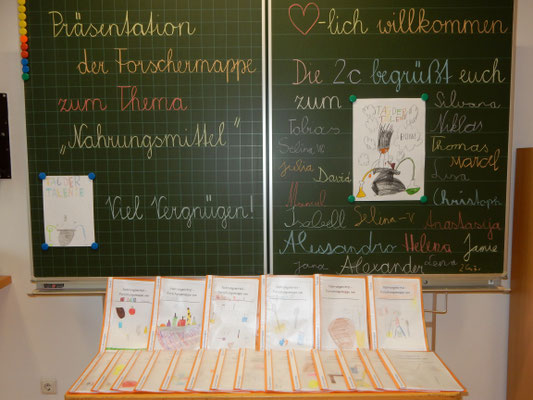 Präsentation
der Forschermappe
zum Thema
„Nahrungsmittel"
TAG DER
TALENTE
Viel Vergnügen!
♡-lich willkommen
Die 2c begrüßt euch
zum
TAG DER
TALENTE
Silvana
Tobias
Niklas
Selina
Thomas
Julia
David
Marcel
Lisa
Christoph
Isabell
Selina-V
Anastasija
Alessandro
Helena
Jamie
Jana
Alexander
Lena